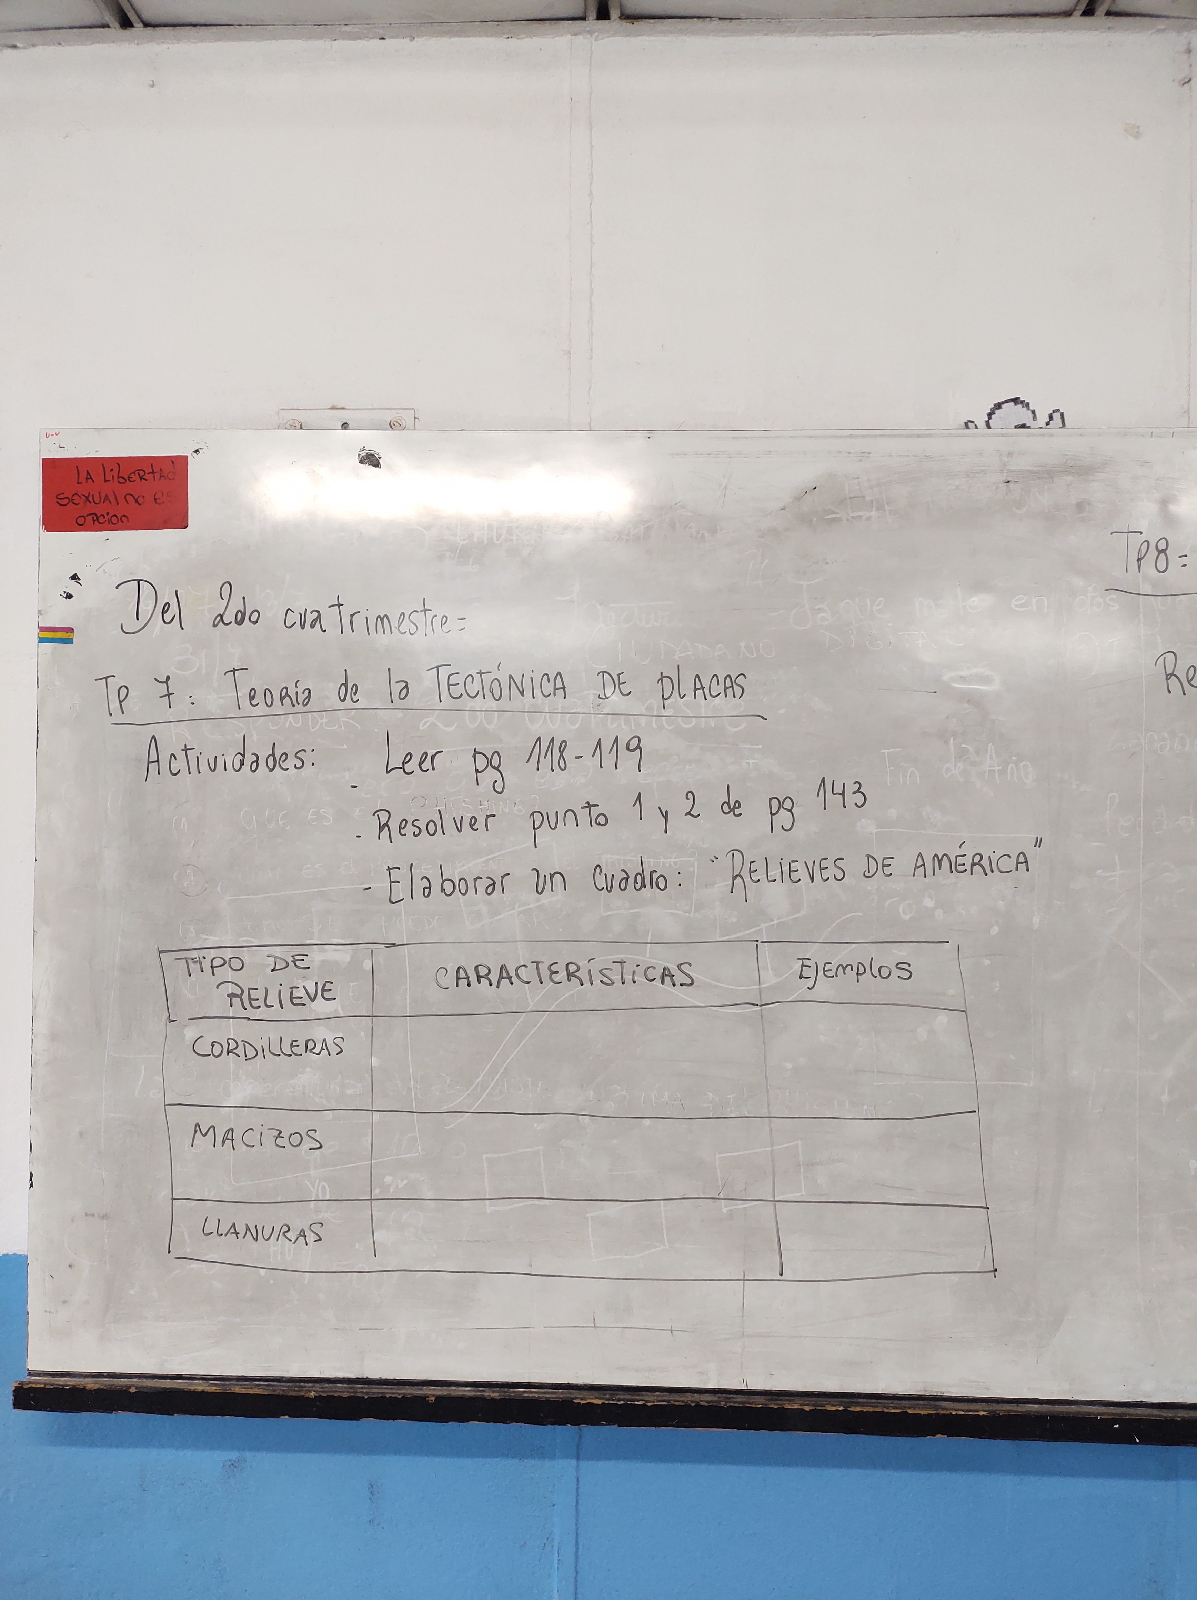 LA LibERTAD
SEXUAL no es
OPCION
Del 2do cuatrimestre=
TP 7: Teoría de la TECTÓNICA DE PLACAS
Actividades:
- Leer pg 118-119
- Resolver punto 1 y 2 de pg 143
- Elaborar un cuadro: "RELIEVES DE AMÉRICA"
TIPO DE
RELIEVE
CARACTERÍSTICAS
Ejemplos
CORDILLERAS
MACIZOS
LLANURAS
TP8=
Re
Fin de Año